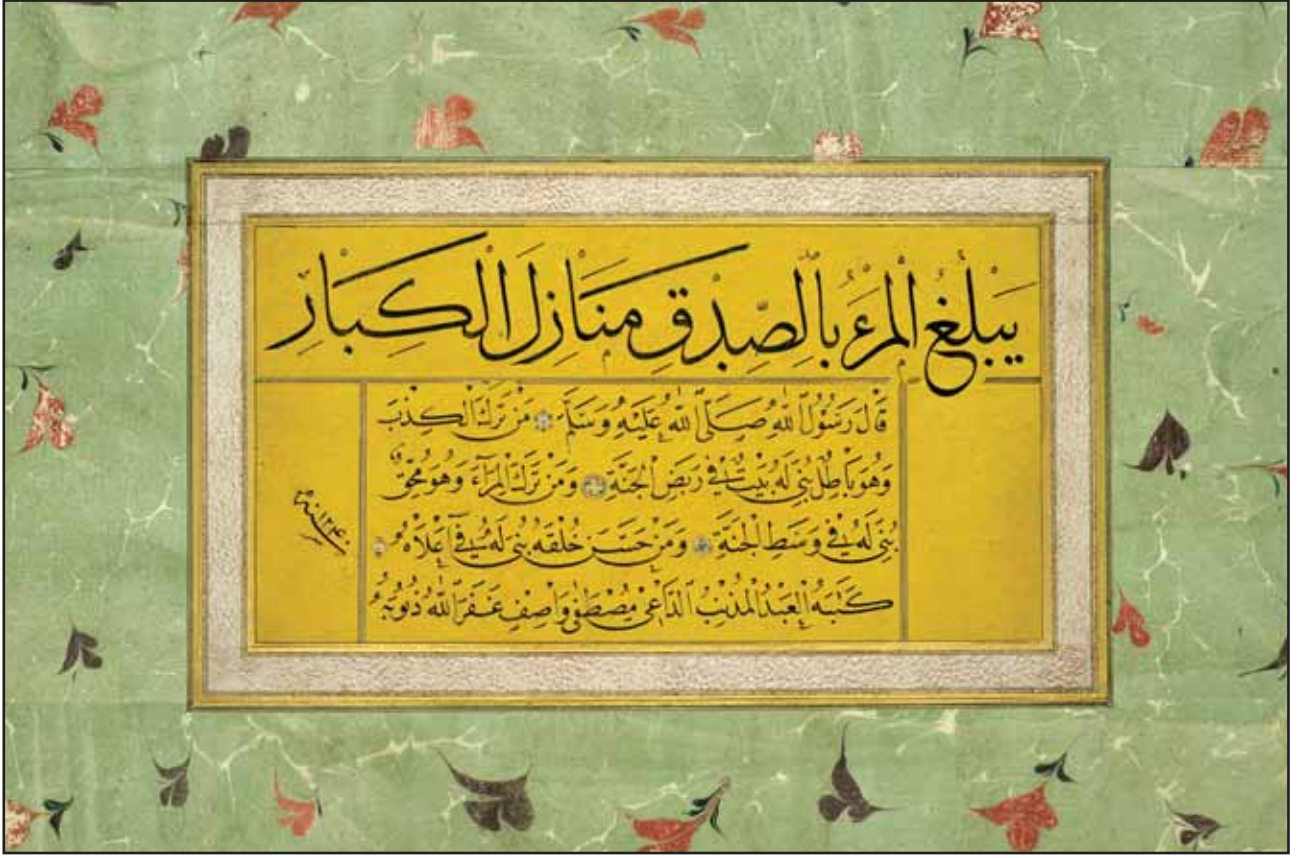 يَبْلُغُ الْمَرْءُ بِالصِّدْقِ مَنَازِلَ الْكِبَارِ
قَالَ رَسُولُ اللهِ صَلَّى اللهُ عَلَيْهِ وَسَلَّمَ مَنْ تَرَكَ الْكِذْبَ
وَهُوَ بَاطِلٌ بُنِيَ لَهُ بَيْتٌ فِي رَبَضِ الْجَنَّةِ وَمَنْ تَرَكَ الْمِرَآءَ وَهُوَ مُحِقٌّ
بُنِيَ لَهُ فِي وَسَطِ الْجَنَّةِ وَمَنْ حَسَّنَ خُلْقَهُ بُنِيَ لَهُ فِي أَعْلَاهُ
كَتَبَهُ الْعَبْدُ الْمُذْنِبُ الدَّاعِي مُصْطَفَى وَاصِف غَفَرَ اللهُ ذُنُوبَهُ
سنة ١٢٤٠